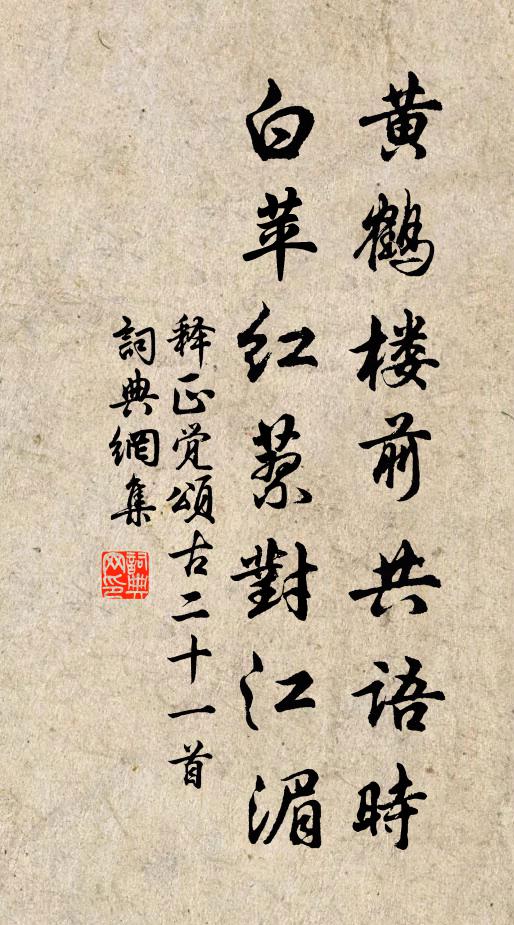 黄鹤楼前共语時
白苹红蓼對江湄
释正觉頌古二十一首
詞典網集
詞典網印